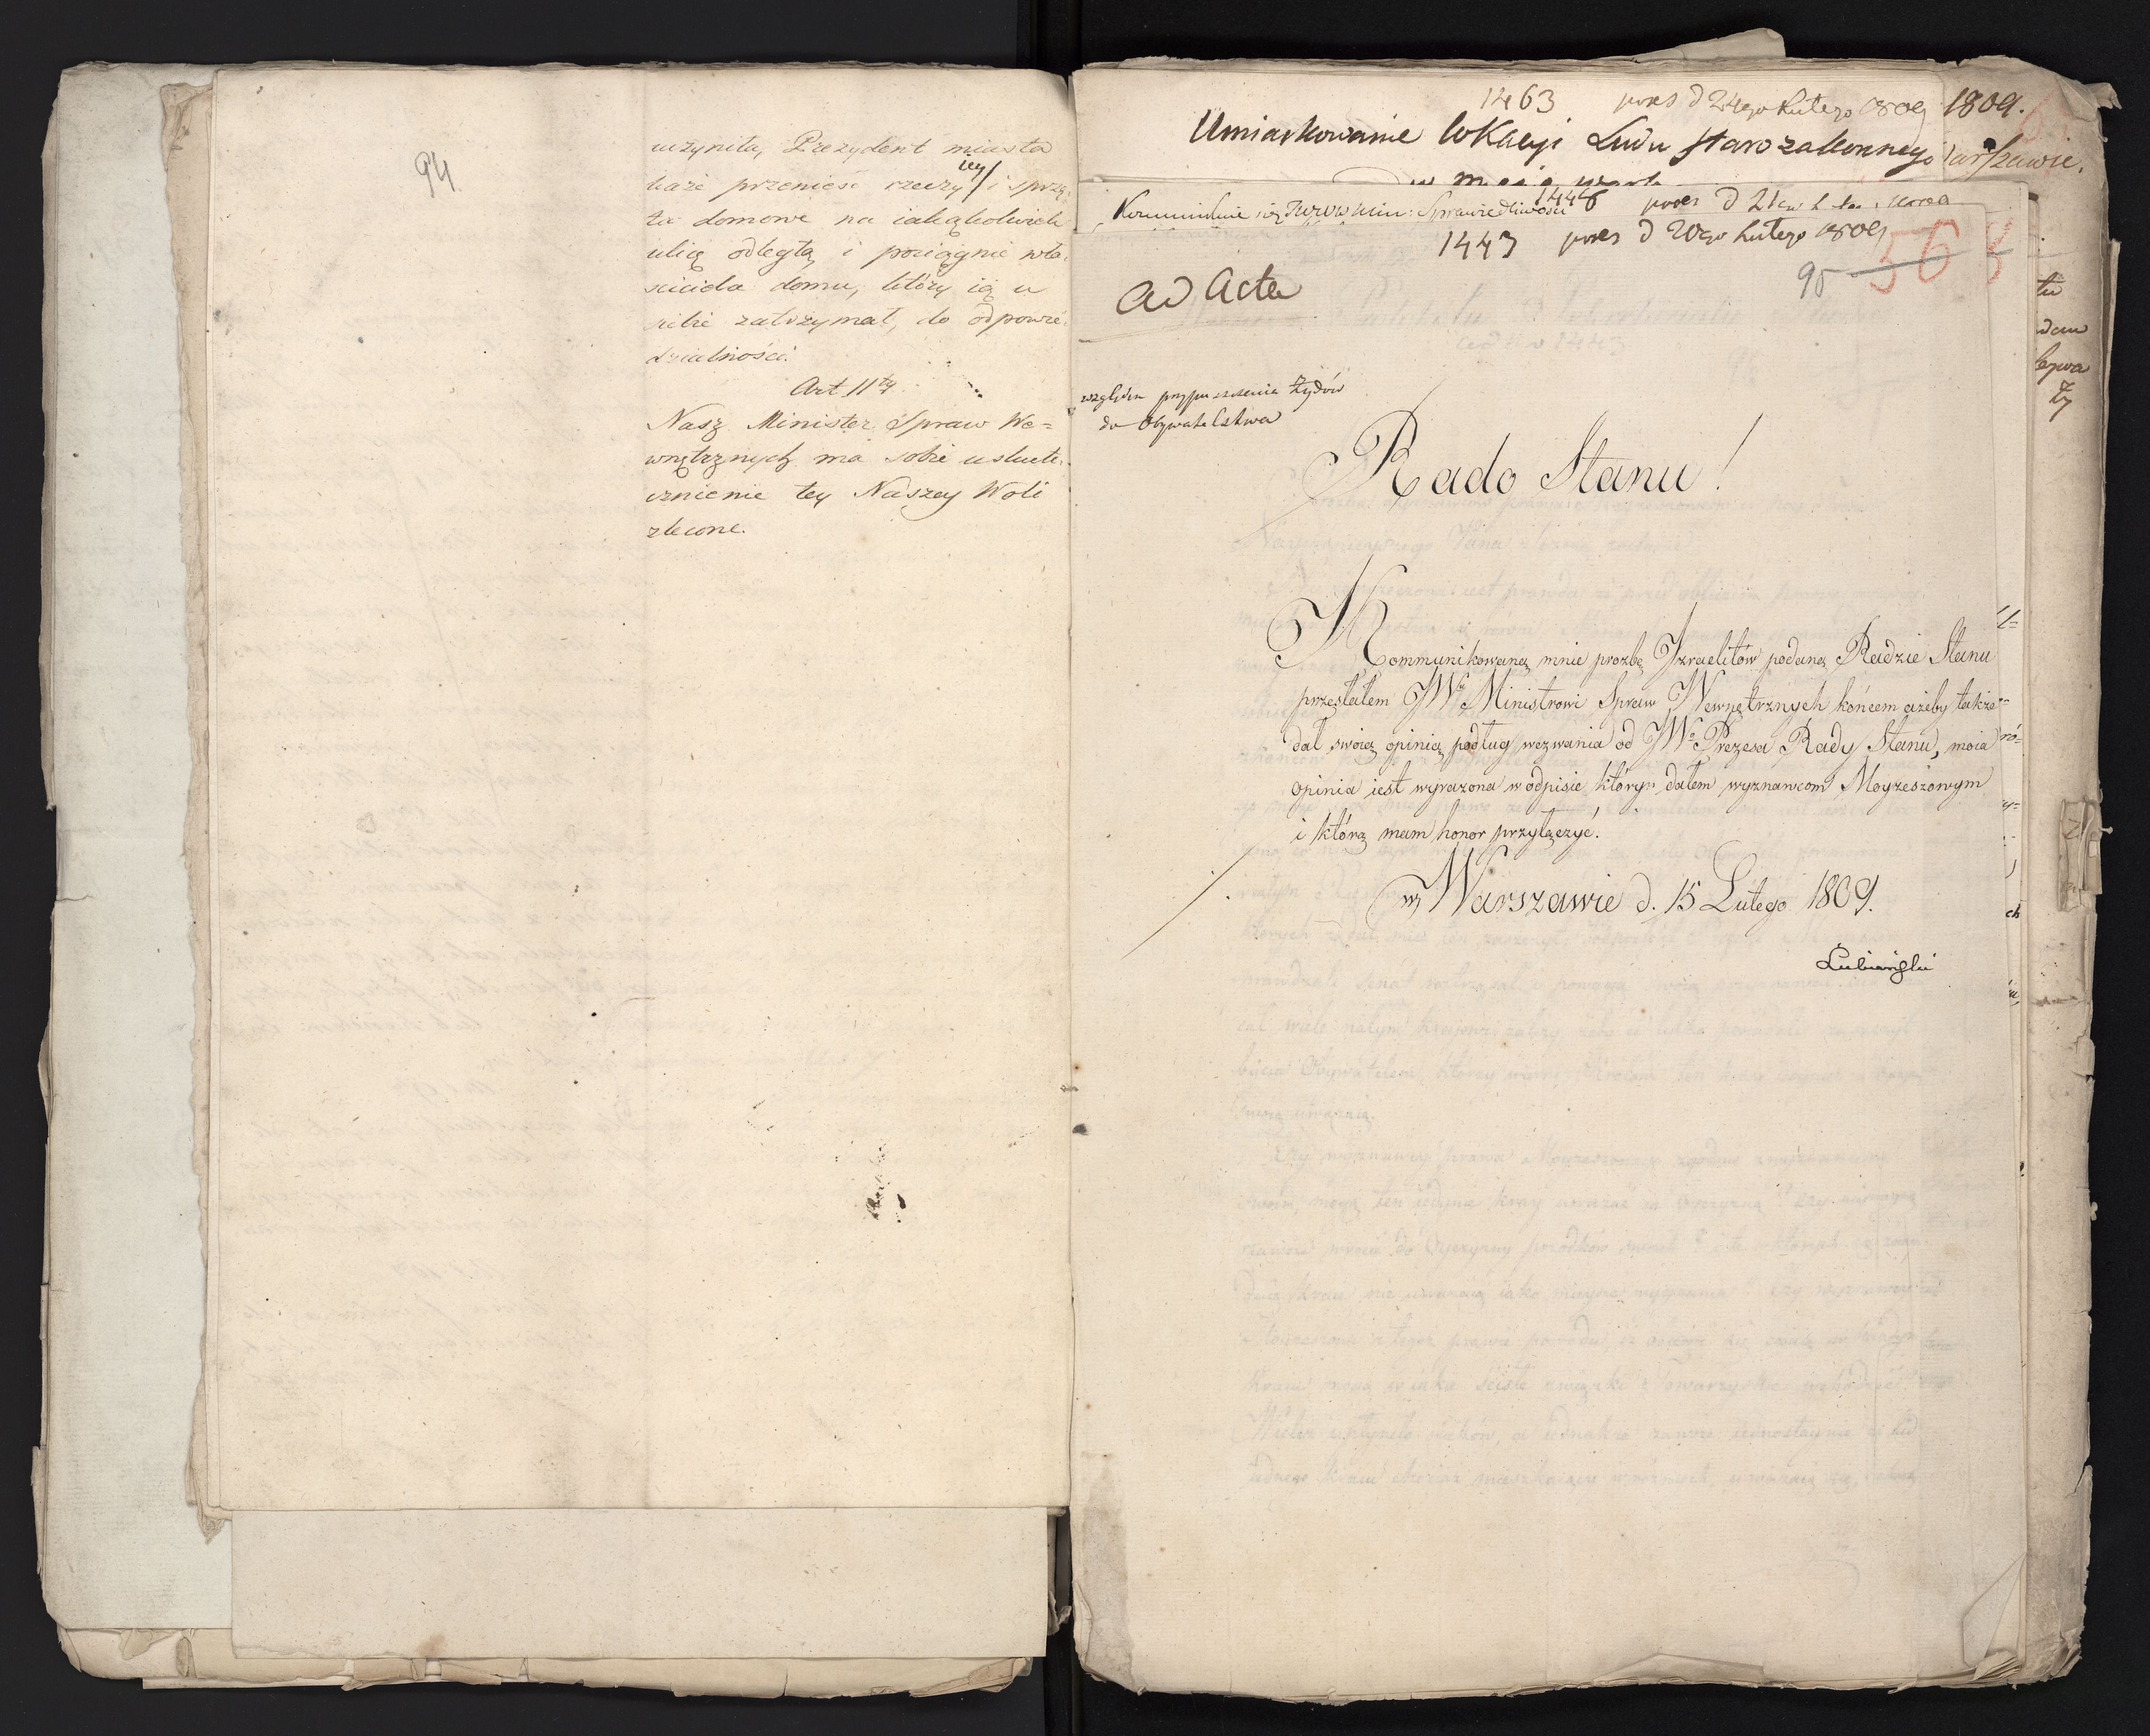 94
uczyniła, Prezydent miasta
każe przenieść rzeczy iey i sprzę-
ta domowe na iakążkolwiek
ulicę odległą, i pociągnie wła-
ściciela domu, który ią u
siebie zatrzymał, do odpowie-
dzialności.
Art 11ty
Nasz Minister Spraw We=
wnętrznych ma sobie uskute-
cznienie tey Naszey Woli
zlecone.
1463 praes d 24go Lutego 1809 1809.
Umiarkowanie lokacyi Ludu starozakonnego
arszawie.
Sprawiedliwości 1446 praes d 21
1443 praes d 20go Lutego 1809
95 56
ad Acta
względem przypuszczenia Żydów
do Obywatelstwa
Rado Stanu!
Kommunikowaną mnie prozbę Izraelitów podaną Radzie Stanu
przesłałem JWu Ministrowi Spraw Wewnętrznych końcem ażeby także
dał swoią opinią podług wezwania od JWo Prezesa Rady Stanu, moia
opinia iest wyrażona w odpisie którym dałem wyznawcom Moyżeszowym
i którą mam honor przyłączyć.
w Warszawie d. 15 Lutego 1809.
Łubieński